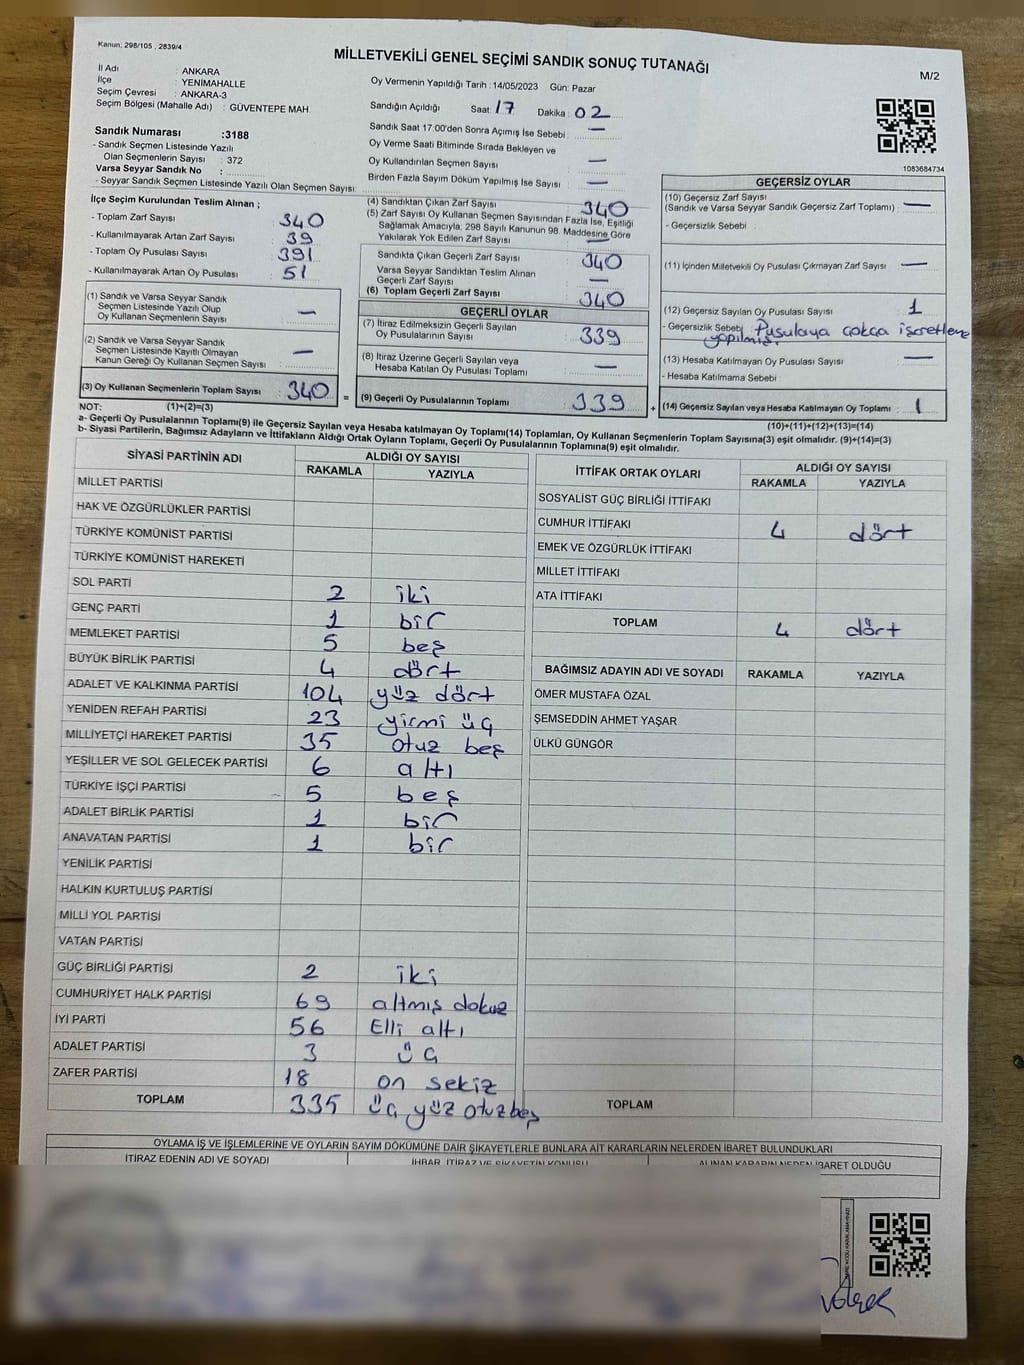 Kanun: 298/105 , 2839/4
MİLLETVEKİLİ GENEL SEÇİMİ SANDIK SONUÇ TUTANAĞI
M/2
İl Adı : ANKARA
İlçe : YENİMAHALLE
Seçim Çevresi : ANKARA-3
Seçim Bölgesi (Mahalle Adı) : GÜVENTEPE MAH
Sandık Numarası :3188
- Sandık Seçmen Listesinde Yazılı
Olan Seçmenlerin Sayısı : 372
Varsa Seyyar Sandık No :
- Seyyar Sandık Seçmen Listesinde Yazılı Olan Seçmen Sayısı:
Oy Vermenin Yapıldığı Tarih : 14/05/2023 Gün: Pazar
Sandığın Açıldığı Saat: 17 Dakika : 02
Sandık Saat 17:00'den Sonra Açımış İse Sebebi : —
Oy Verme Saati Bitiminde Sırada Bekleyen ve
Oy Kullandırılan Seçmen Sayısı —
Birden Fazla Sayım Döküm Yapılmış İse Sayısı : —
1083684734
İlçe Seçim Kurulundan Teslim Alınan ;
- Toplam Zarf Sayısı : 340
- Kullanılmayarak Artan Zarf Sayısı : 39
- Toplam Oy Pusulası Sayısı : 391
- Kullanılmayarak Artan Oy Pusulası : 51
(1) Sandık ve Varsa Seyyar Sandık
Seçmen Listesinde Yazılı Olup
Oy Kullanan Seçmenlerin Sayısı : —
(2) Sandık ve Varsa Seyyar Sandık
Seçmen Listesinde Kayıtlı Olmayan
Kanun Gereği Oy Kullanan Seçmen Sayısı : —
(3) Oy Kullanan Seçmenlerin Toplam Sayısı : 340 =
(4) Sandıktan Çıkan Zarf Sayısı : 340
(5) Zarf Sayısı Oy Kullanan Seçmen Sayısından Fazla İse, Eşitliği
Sağlamak Amacıyla, 298 Sayılı Kanunun 98. Maddesine Göre
Yakılarak Yok Edilen Zarf Sayısı : —
Sandıkta Çıkan Geçerli Zarf Sayısı : 340
Varsa Seyyar Sandıktan Teslim Alınan
Geçerli Zarf Sayısı : —
(6) Toplam Geçerli Zarf Sayısı : 340
GEÇERLİ OYLAR
(7) İtiraz Edilmeksizin Geçerli Sayılan
Oy Pusulalarının Sayısı : 339
(8) İtiraz Üzerine Geçerli Sayılan veya
Hesaba Katılan Oy Pusulası Toplamı : —
(9) Geçerli Oy Pusulalarının Toplamı : 339 +
GEÇERSİZ OYLAR
(10) Geçersiz Zarf Sayısı
(Sandık ve Varsa Seyyar Sandık Geçersiz Zarf Toplamı) : —
- Geçersizlik Sebebi :
(11) İçinden Milletvekili Oy Pusulası Çıkmayan Zarf Sayısı : —
(12) Geçersiz Sayılan Oy Pusulası Sayısı : 1
- Geçersizlik Sebebi : Pusulaya çokca işaretleme
yapılmış.
(13) Hesaba Katılmayan Oy Pusulası Sayısı : —
- Hesaba Katılmama Sebebi :
(14) Geçersiz Sayılan veya Hesaba Katılmayan Oy Toplamı : 1
NOT: (1)+(2)=(3)
(10)+(11)+(12)+(13)=(14)
a- Geçerli Oy Pusulalarının Toplamı(9) ile Geçersiz Sayılan veya Hesaba Katılmayan Oy Toplamı(14) Toplamları, Oy Kullanan Seçmenlerin Toplam Sayısına(3) eşit olmalıdır. (9)+(14)=(3)
b- Siyasi Partilerin, Bağımsız Adayların ve İttifakların Aldığı Ortak Oyların Toplamı, Geçerli Oy Pusulalarının Toplamına(9) eşit olmalıdır.
SİYASİ PARTİNİN ADI ALDIĞI OY SAYISI
RAKAMLA YAZIYLA
MİLLET PARTİSİ
HAK VE ÖZGÜRLÜKLER PARTİSİ
TÜRKİYE KOMÜNİST PARTİSİ
TÜRKİYE KOMÜNİST HAREKETİ
SOL PARTİ 2 iki
GENÇ PARTİ 1 bir
MEMLEKET PARTİSİ 5 beş
BÜYÜK BİRLİK PARTİSİ 4 dört
ADALET VE KALKINMA PARTİSİ 104 yüz dört
YENİDEN REFAH PARTİSİ 23 yirmi üç
MİLLİYETÇİ HAREKET PARTİSİ 35 otuz beş
YEŞİLLER VE SOL GELECEK PARTİSİ 6 altı
TÜRKİYE İŞÇİ PARTİSİ 5 beş
ADALET BİRLİK PARTİSİ 1 bir
ANAVATAN PARTİSİ 1 bir
YENİLİK PARTİSİ
HALKIN KURTULUŞ PARTİSİ
MİLLİ YOL PARTİSİ
VATAN PARTİSİ
GÜÇ BİRLİĞİ PARTİSİ 2 iki
CUMHURİYET HALK PARTİSİ 69 altmış dokuz
İYİ PARTİ 56 Elli altı
ADALET PARTİSİ 3 üç
ZAFER PARTİSİ 18 on sekiz
TOPLAM 335 üç yüz otuzbeş
İTTİFAK ORTAK OYLARI ALDIĞI OY SAYISI
RAKAMLA YAZIYLA
SOSYALİST GÜÇ BİRLİĞİ İTTİFAKI
CUMHUR İTTİFAKI 4 dört
EMEK VE ÖZGÜRLÜK İTTİFAKI
MİLLET İTTİFAKI
ATA İTTİFAKI
TOPLAM 4 dört
BAĞIMSIZ ADAYIN ADI VE SOYADI RAKAMLA YAZIYLA
ÖMER MUSTAFA ÖZAL
ŞEMSEDDİN AHMET YAŞAR
ÜLKÜ GÜNGÖR
TOPLAM
OYLAMA İŞ VE İŞLEMLERİNE VE OYLARIN SAYIM DÖKÜMÜNE DAİR ŞİKAYETLERLE BUNLARA AİT KARARLARIN NELERDEN İBARET BULUNDUKLARI
İTİRAZ EDENİN ADI VE SOYADI İHBAR, İTİRAZ VE ŞİKAYETİN KONUSU ALINAN KARARIN NEDEN İBARET OLDUĞU